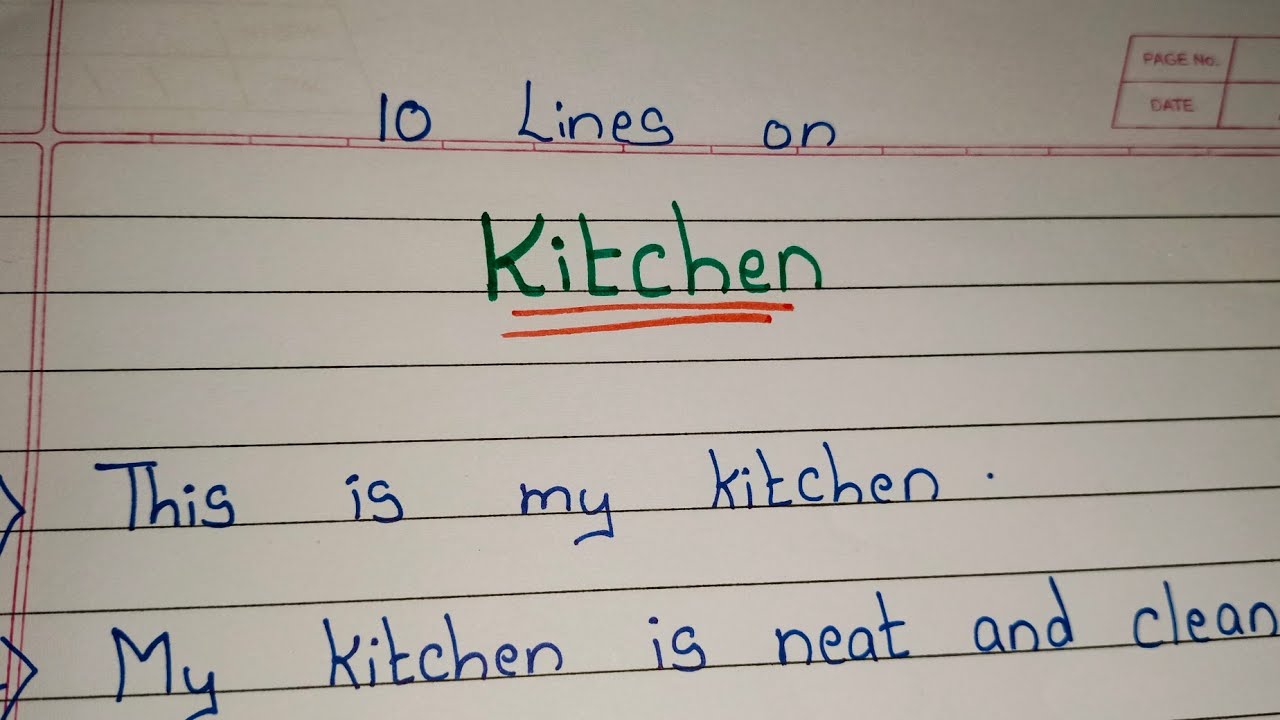 PAGE No.
DATE
10 Lines on
Kitchen
This is my kitchen.
My kitchen is neat and clean